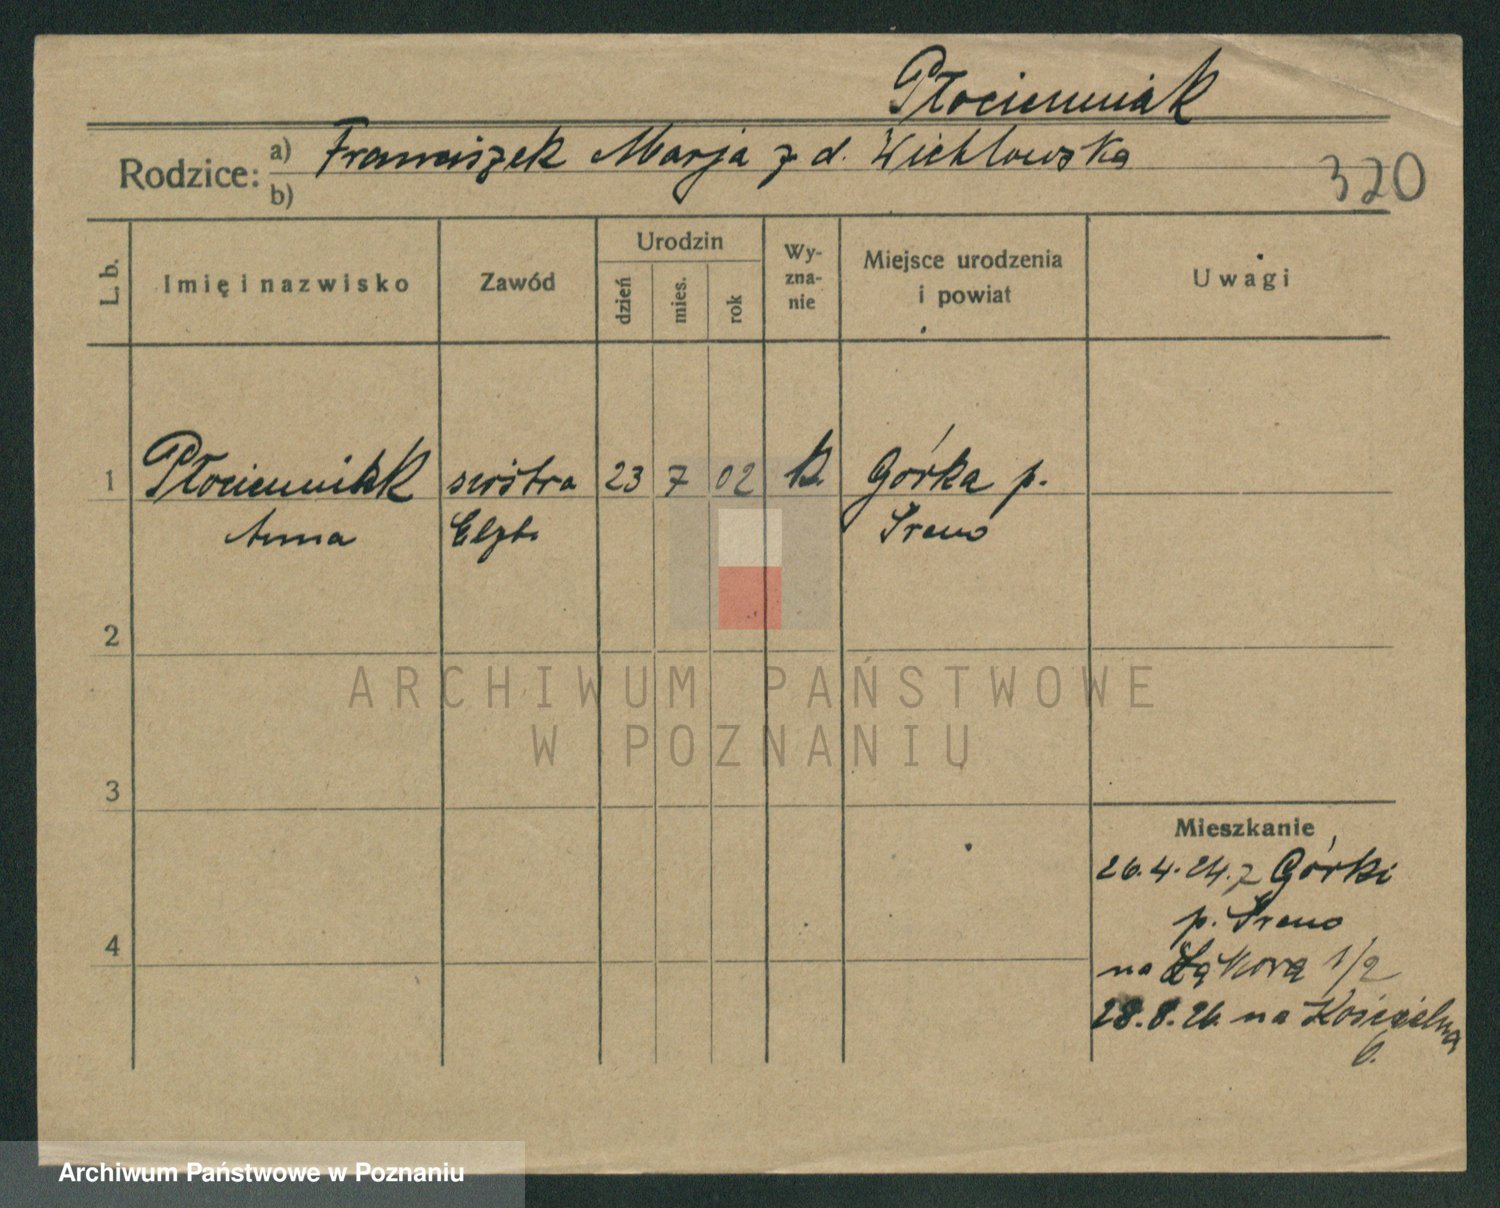 Płocienniak
Rodzice: a) Franciszek Marja z d. Wichłowska
b)
320
L. b.
Imię i nazwisko
Zawód
Urodzin
dzień
mies.
rok
Wy-
zna-
nie
Miejsce urodzenia
i powiat
Uwagi
1 Płocienniak siostra 23 7 02 k. Górka p.
Anna Elżb. Śrem
2
ARCHIWUM PAŃSTWOWE
W POZNANIU
3
Mieszkanie
26.4.24. z Górki
p. Śrem
na Łąkową 1/2
28.8.26. na Kościelną
6.
4
Archiwum Państwowe w Poznaniu